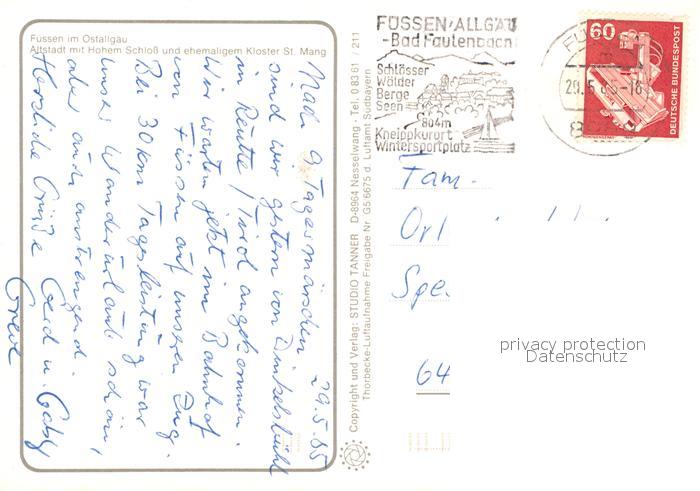 Füssen im Ostallgäu
Altstadt mit Hohem Schloß und ehemaligem Kloster St. Mang
29.5.85
Nach 9 Tagesmärschen
sind wir gestern von Dinkelsbühl
in Reutte/Tirol angekommen.
Wir warten jetzt im Bahnhof
von Füssen auf unseren Zug.
Bei 30km Tagesleistung war
unser Wanderurlaub schön,
aber auch anstrengend.
Herzliche Grüße Gerd u. Gabi
Copyright und Verlag: STUDIO TANNER D-8964 Nesselwang · Tel. 0 83 61 / 211
Thorbecke-Luftaufnahme Freigabe Nr G5 6675 d Luftamt Südbayern
FÜSSEN/ALLGÄU
-Bad Faulenbach
Schlösser
Wälder
Berge
Seen
804m
Kneippkurort
Wintersportplatz
29.5.85-16
8
60
DEUTSCHE BUNDESPOST
Fam.
Ort
Spe
64
privacy protection
Datenschutz